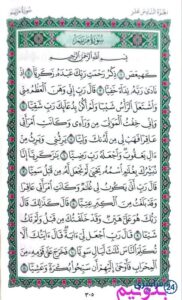 الجزء السادس عشر
سورة مريم
سورة مريم
بسم الله الرحمن الرحيم
كهيعص ١ ذكر رحمت ربك عبده زكريا ٢ إذ
نادى ربه نداء خفيا ٣ قال رب إني وهن العظم مني
واشتعل الرأس شيبا ولم أكن بدعائك رب شقيا ٤
وإني خفت الموالي من وراءي وكانت امرأتي
عاقرا فهب لي من لدنك وليا ٥ يرثني ويرث من
ءال يعقوب واجعله رب رضيا ٦ يزكريا إنا
نبشرك بغلم اسمه يحيى لم نجعل له من قبل سميا ٧
قال رب أنى يكون لي غلم وكانت امرأتي عاقرا
وقد بلغت من الكبر عتيا ٨ قال كذلك قال
ربك هو علي هين وقد خلقتك من قبل ولم تك
شيئا ٩ قال رب اجعل لي ءاية قال ءايتك ألا
تكلم الناس ثلث ليال سويا ١٠ فخرج على قومه من
المحراب فأوحى إليهم أن سبحوا بكرة وعشيا ١١
٣٠٥
24